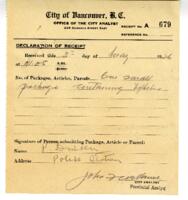 City of Vancouver, B.C.
OFFICE OF THE CITY ANALYST
RECEIPT No. A 679
REFERENCE No.
DECLARATION OF RECEIPT
Received this 5th day of
at
No. of Packages, Articles, Parcels One small
package containing
Signature of Person submitting Package, Article or Parcel:
Name
Address Police Station
CITY ANALYST
Provincial Analyst